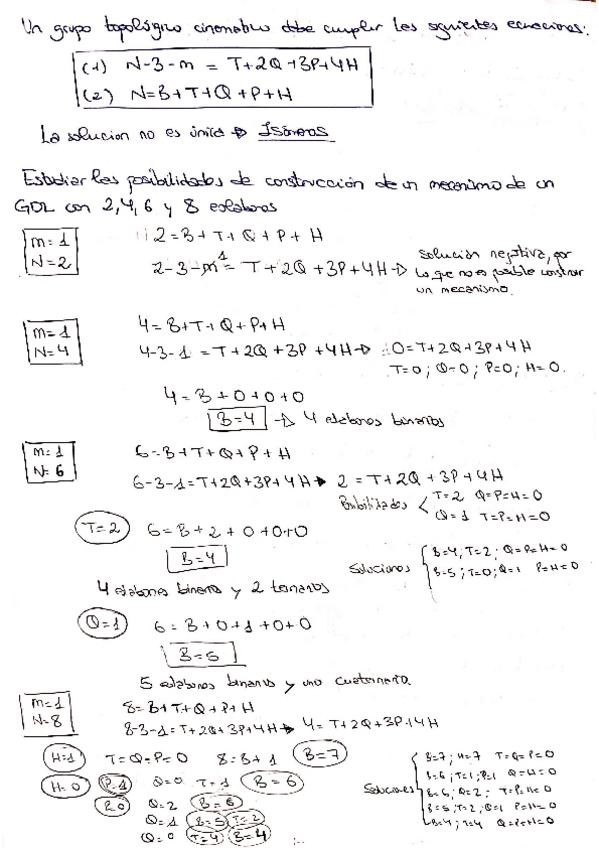 Un grupo topológico cinematico debe cumplir las siguientes ecuaciones:
(1) N-3-m = T+2Q+3P+4H
(2) N=B+T+Q+P+H
La solucion no es única → Isómeros
Estudiar las posibilidades de construcción de un mecanismo de un
GDL con 2,4,6 y 8 eslabones
m=1
N=2
2=B+T+Q+P+H
2-3-m¹= T+2Q+3P+4H→ Solución negativa, por
lo que no es posible construir
un mecanismo.
m=1
N=4
4=B+T+Q+P+H
4-3-1 = T+2Q+3P+4H→ 0=T+2Q+3P+4H
T=0; Q=0; P=0; H=0.
4=B+0+0+0
B=4 → 4 eslabones binarios
m=1
N=6
6=B+T+Q+P+H
6-3-1=T+2Q+3P+4H→ 2=T+2Q+3P+4H
T=2 Q=P=H=0
Q=1 T=P=H=0
T=2 6=B+2+0+0+0
B=4
Soluciones B=4; T=2; Q=P=H=0
B=5; T=0; Q=1 P=H=0
4 eslabones binarios y 2 ternarios
Q=1 6=B+0+1+0+0
B=5
5 eslabones binarios y uno cuaternario.
m=1
N=8
8=B+T+Q+P+H
8-3-1=T+2Q+3P+4H→ 4=T+2Q+3P+4H
H=1 T=Q=P=0 8=B+1 B=7
H=0 P=1 Q=0 T=1 B=6
P=0 Q=2 B=6
Q=1 B=5 T=2
Q=0 T=4 B=4
Soluciones
B=7; H=7 T=Q=P=0
B=6; T=1; P=1 Q=H=0
B=6; Q=2; T=P=H=0
B=5; T=2; Q=1 P=H=0
B=4; T=4 Q=P=H=0